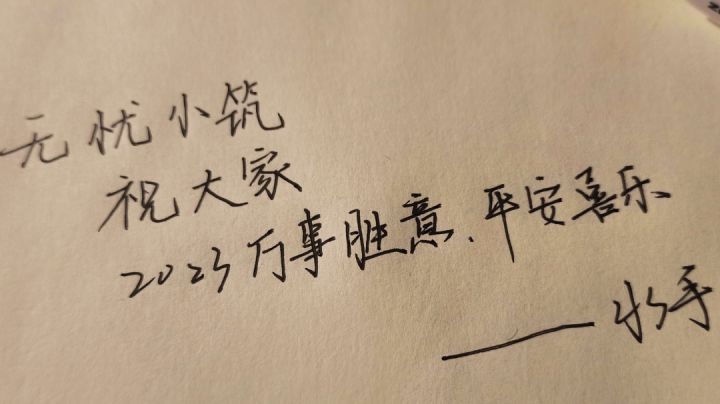 无忧小筑
祝大家
2023万事胜意、平安喜乐
——水手